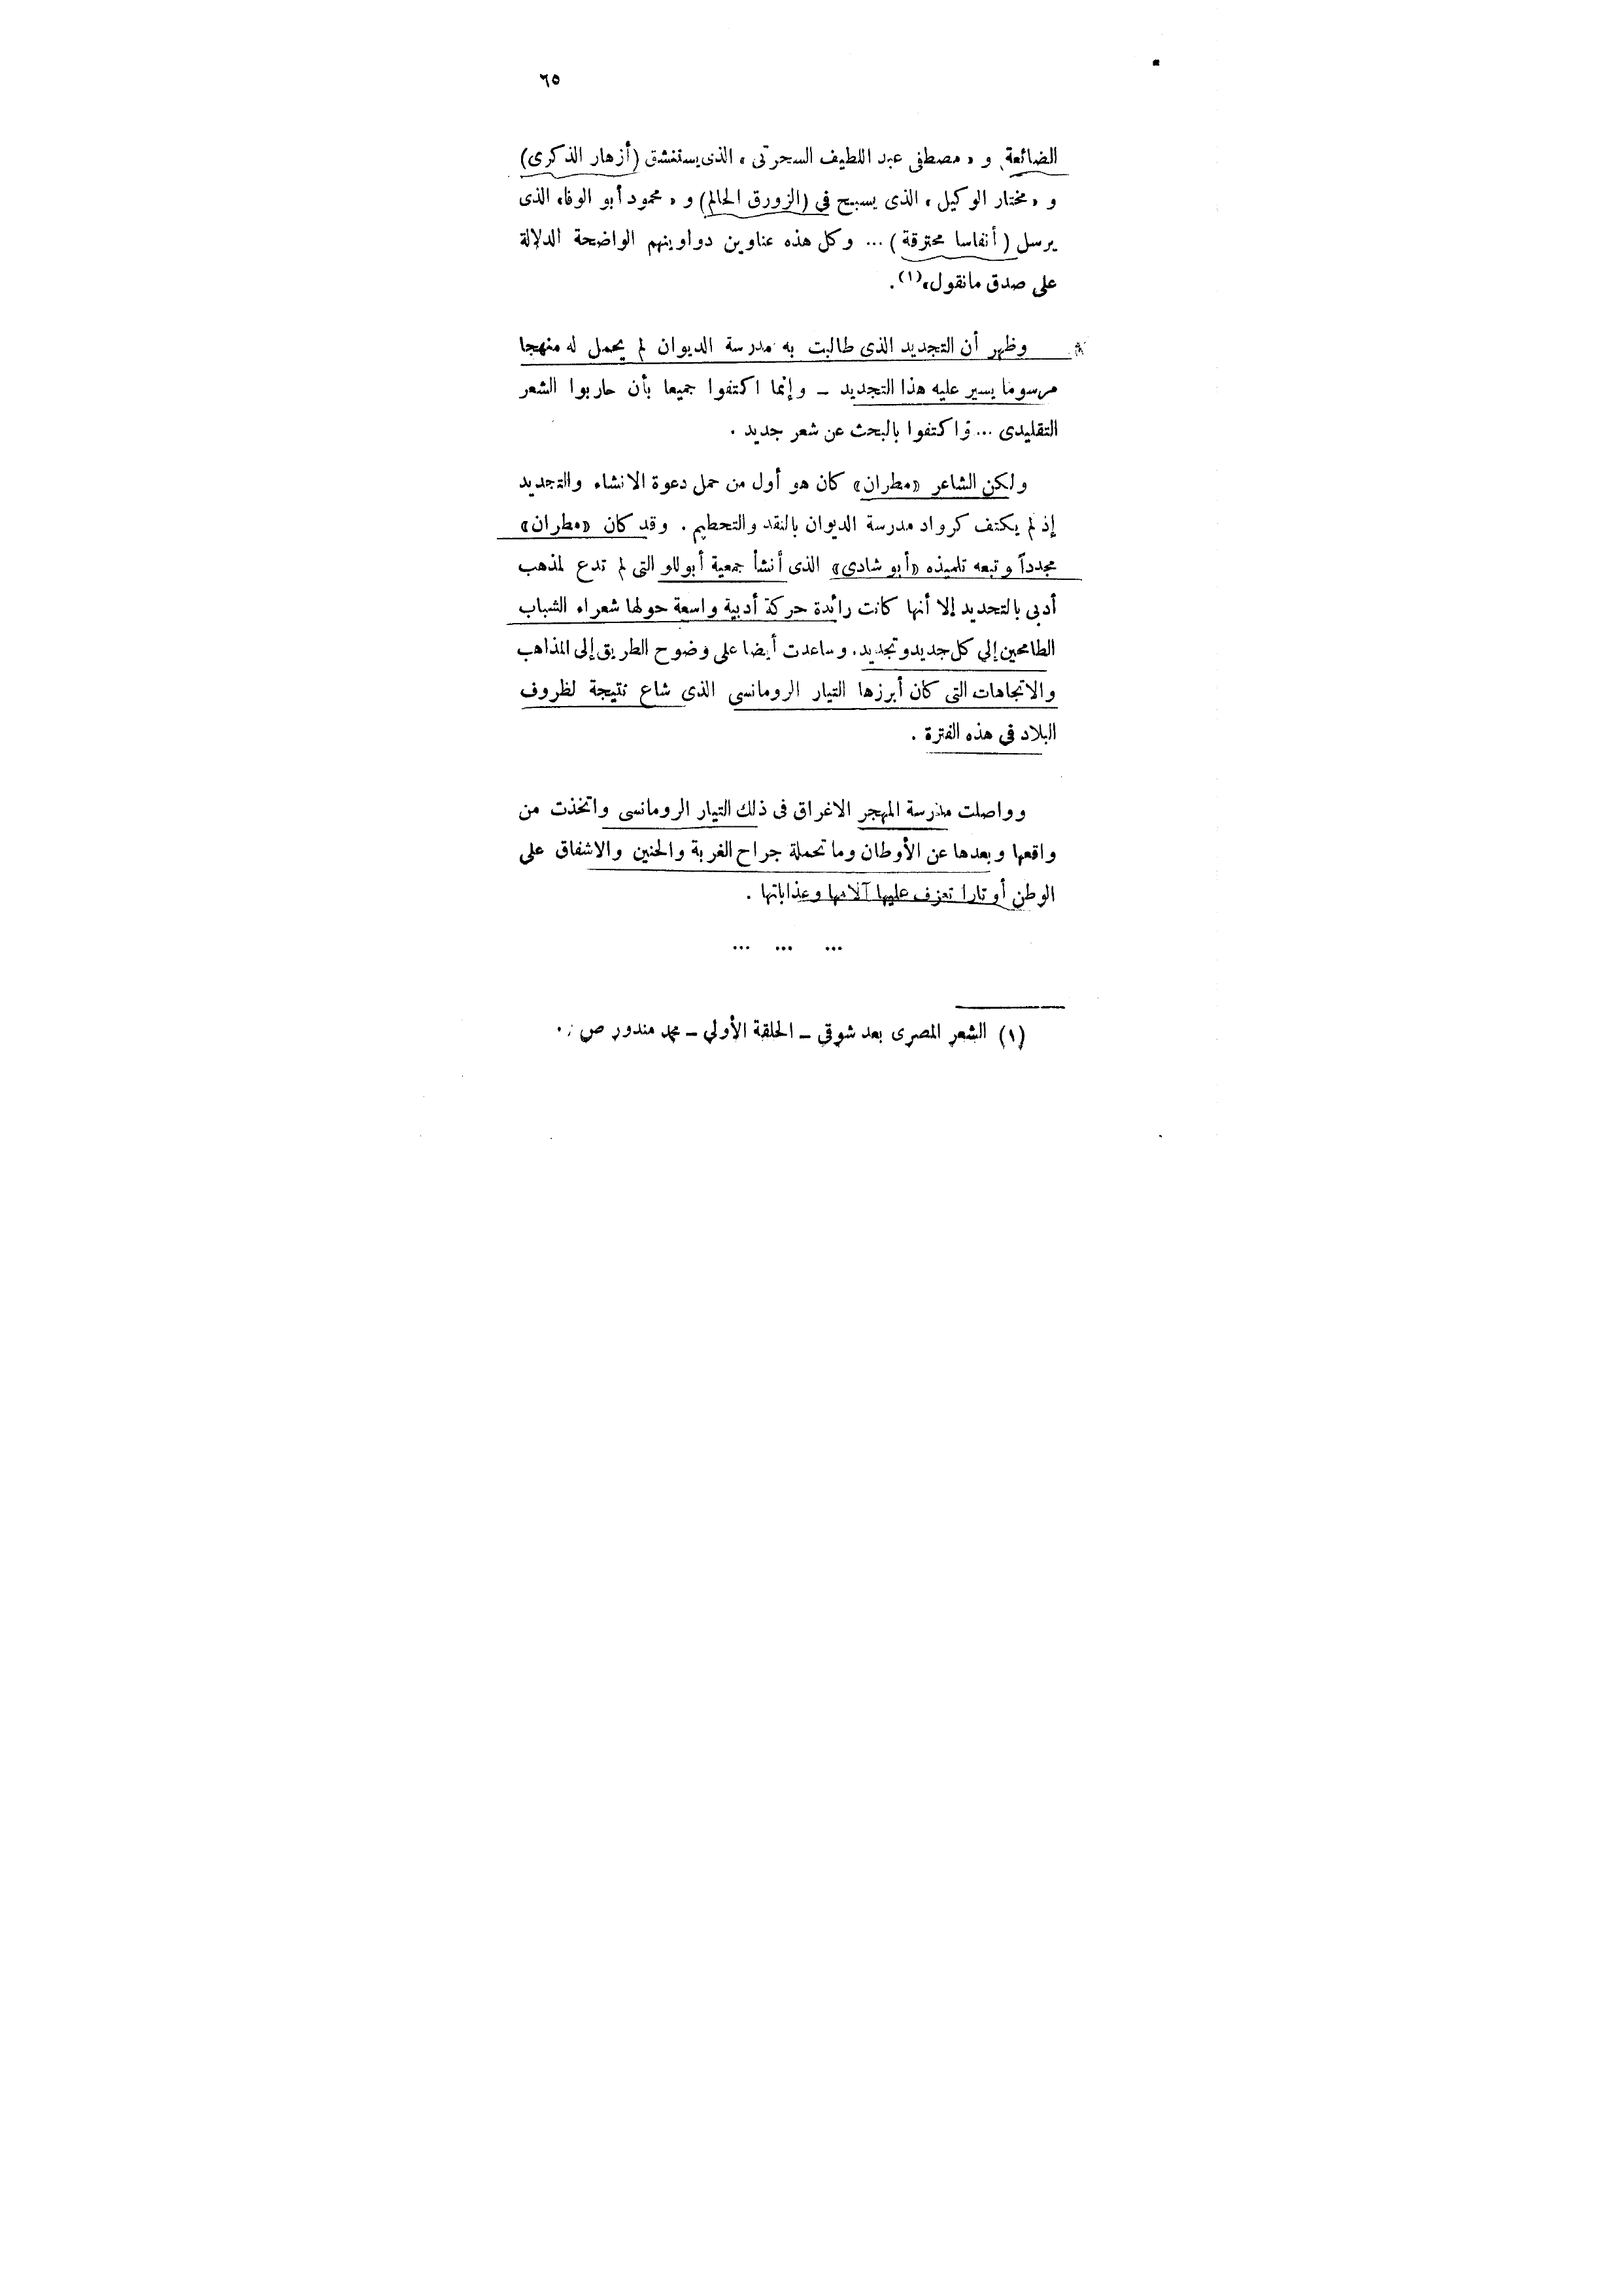 ٦٥
الضائعة و « مصطفى عبد اللطيف السحرتى » الذى يستنشق (أزهار الذكرى)
و « مختار الوكيل » الذى يسبح فى (الزورق الحالم) و « محمود أبو الوفا » الذى
يرسل ( أنفاسا محترقة ) ... وكل هذه عناوين دواوينهم الواضحة الدلالة
على صدق مانقول»(١) .
وظهر أن التجديد الذى طالبت به مدرسة الديوان لم يحمل له منهجا
مرسوما يسير عليه هذا التجديد – وإنما اكتفوا جميعا بأن حاربوا الشعر
التقليدى ... واكتفوا بالبحث عن شعر جديد .
ولكن الشاعر «مطران» كان هو أول من حمل دعوة الانشاء والتجديد
إذ لم يكتف كرواد مدرسة الديوان بالنقد والتحطيم . وقد كان «مطران»
مجدداً وتبعه تلميذه «أبو شادى» الذى أنشأ جمعية أبوللو التى لم تدع لمذهب
أدبى بالتحديد إلا أنها كانت رائدة حركة أدبية واسعة حولها شعراء الشباب
الطامحين إلى كل جديد وتجديد . وساعدت أيضا على وضوح الطريق إلى المذاهب
والاتجاهات التى كان أبرزها التيار الرومانسى الذى شاع نتيجة لظروف
البلاد فى هذه الفترة .
وواصلت مدرسة المهجر الاغراق فى ذلك التيار الرومانسى واتخذت من
واقعها وبعدها عن الأوطان وما تحملة جراح الغربة والحنين والاشفاق على
الوطن أوتارا تعزف عليها آلامها وعذاباتها .
... ... ...
(١) الشعر المصرى بعد شوقى – الحلقة الأولى – محمد مندور ص